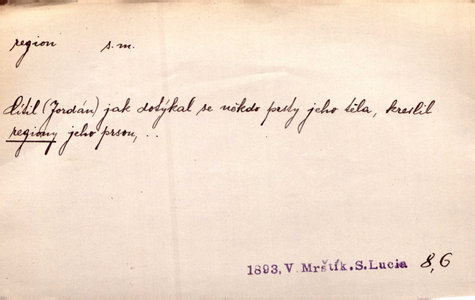 region s.m.
Cítil (Jordán) jak dotýkal se někdo prsty jeho těla, kreslil
regiony jeho prsou, ..
1893, V. Mrštík. S. Lucia 8,6